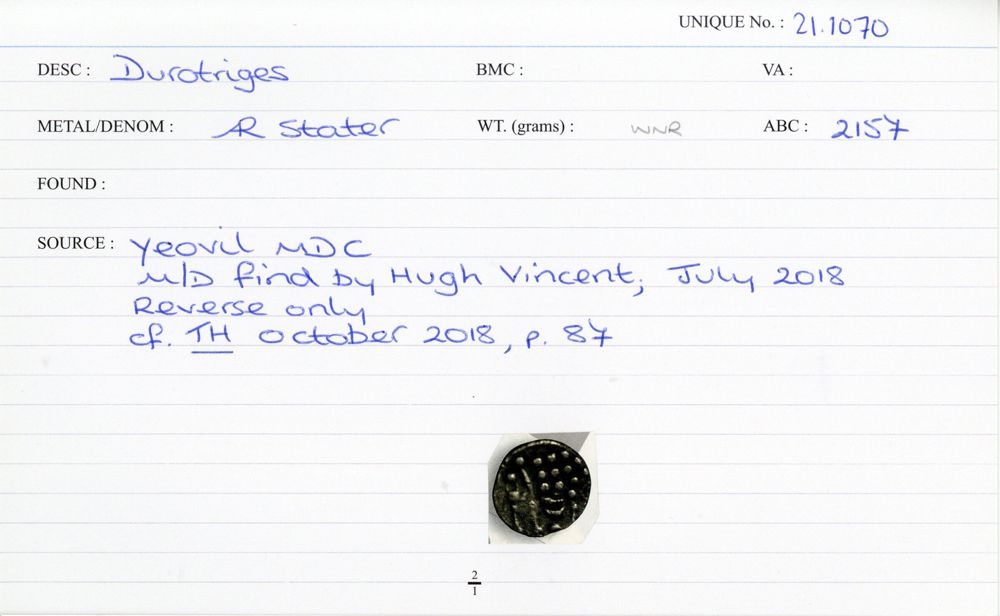 UNIQUE No. : 21.1070
DESC : Durotriges BMC : VA :
METAL/DENOM : AR Stater WT. (grams) : WNR ABC : 2157
FOUND :
SOURCE : Yeovil MDC
M/D find by Hugh Vincent, July 2018
Reverse only
cf. TH October 2018, p. 87
2
1